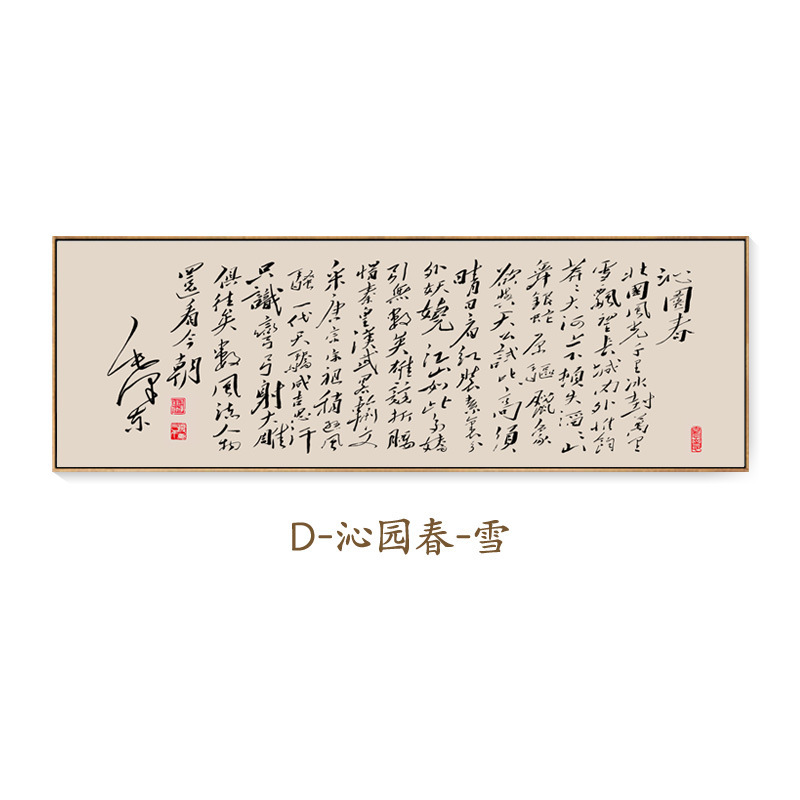 沁園春
北國風光千里冰封萬里
雪飄望長城內外惟餘
莽々大河上下頓失滔々山
舞銀蛇原驅臘象
欲與天公試比高須
晴日看紅裝素裹分
外妖嬈江山如此多嬌
引無數英雄競折腰
惜秦皇漢武略輸文
采唐宗宋祖稍遜風
騷一代天驕成吉思汗
只識彎弓射大雕
俱往矣數風流人物
還看今朝
毛澤東
D-沁园春-雪